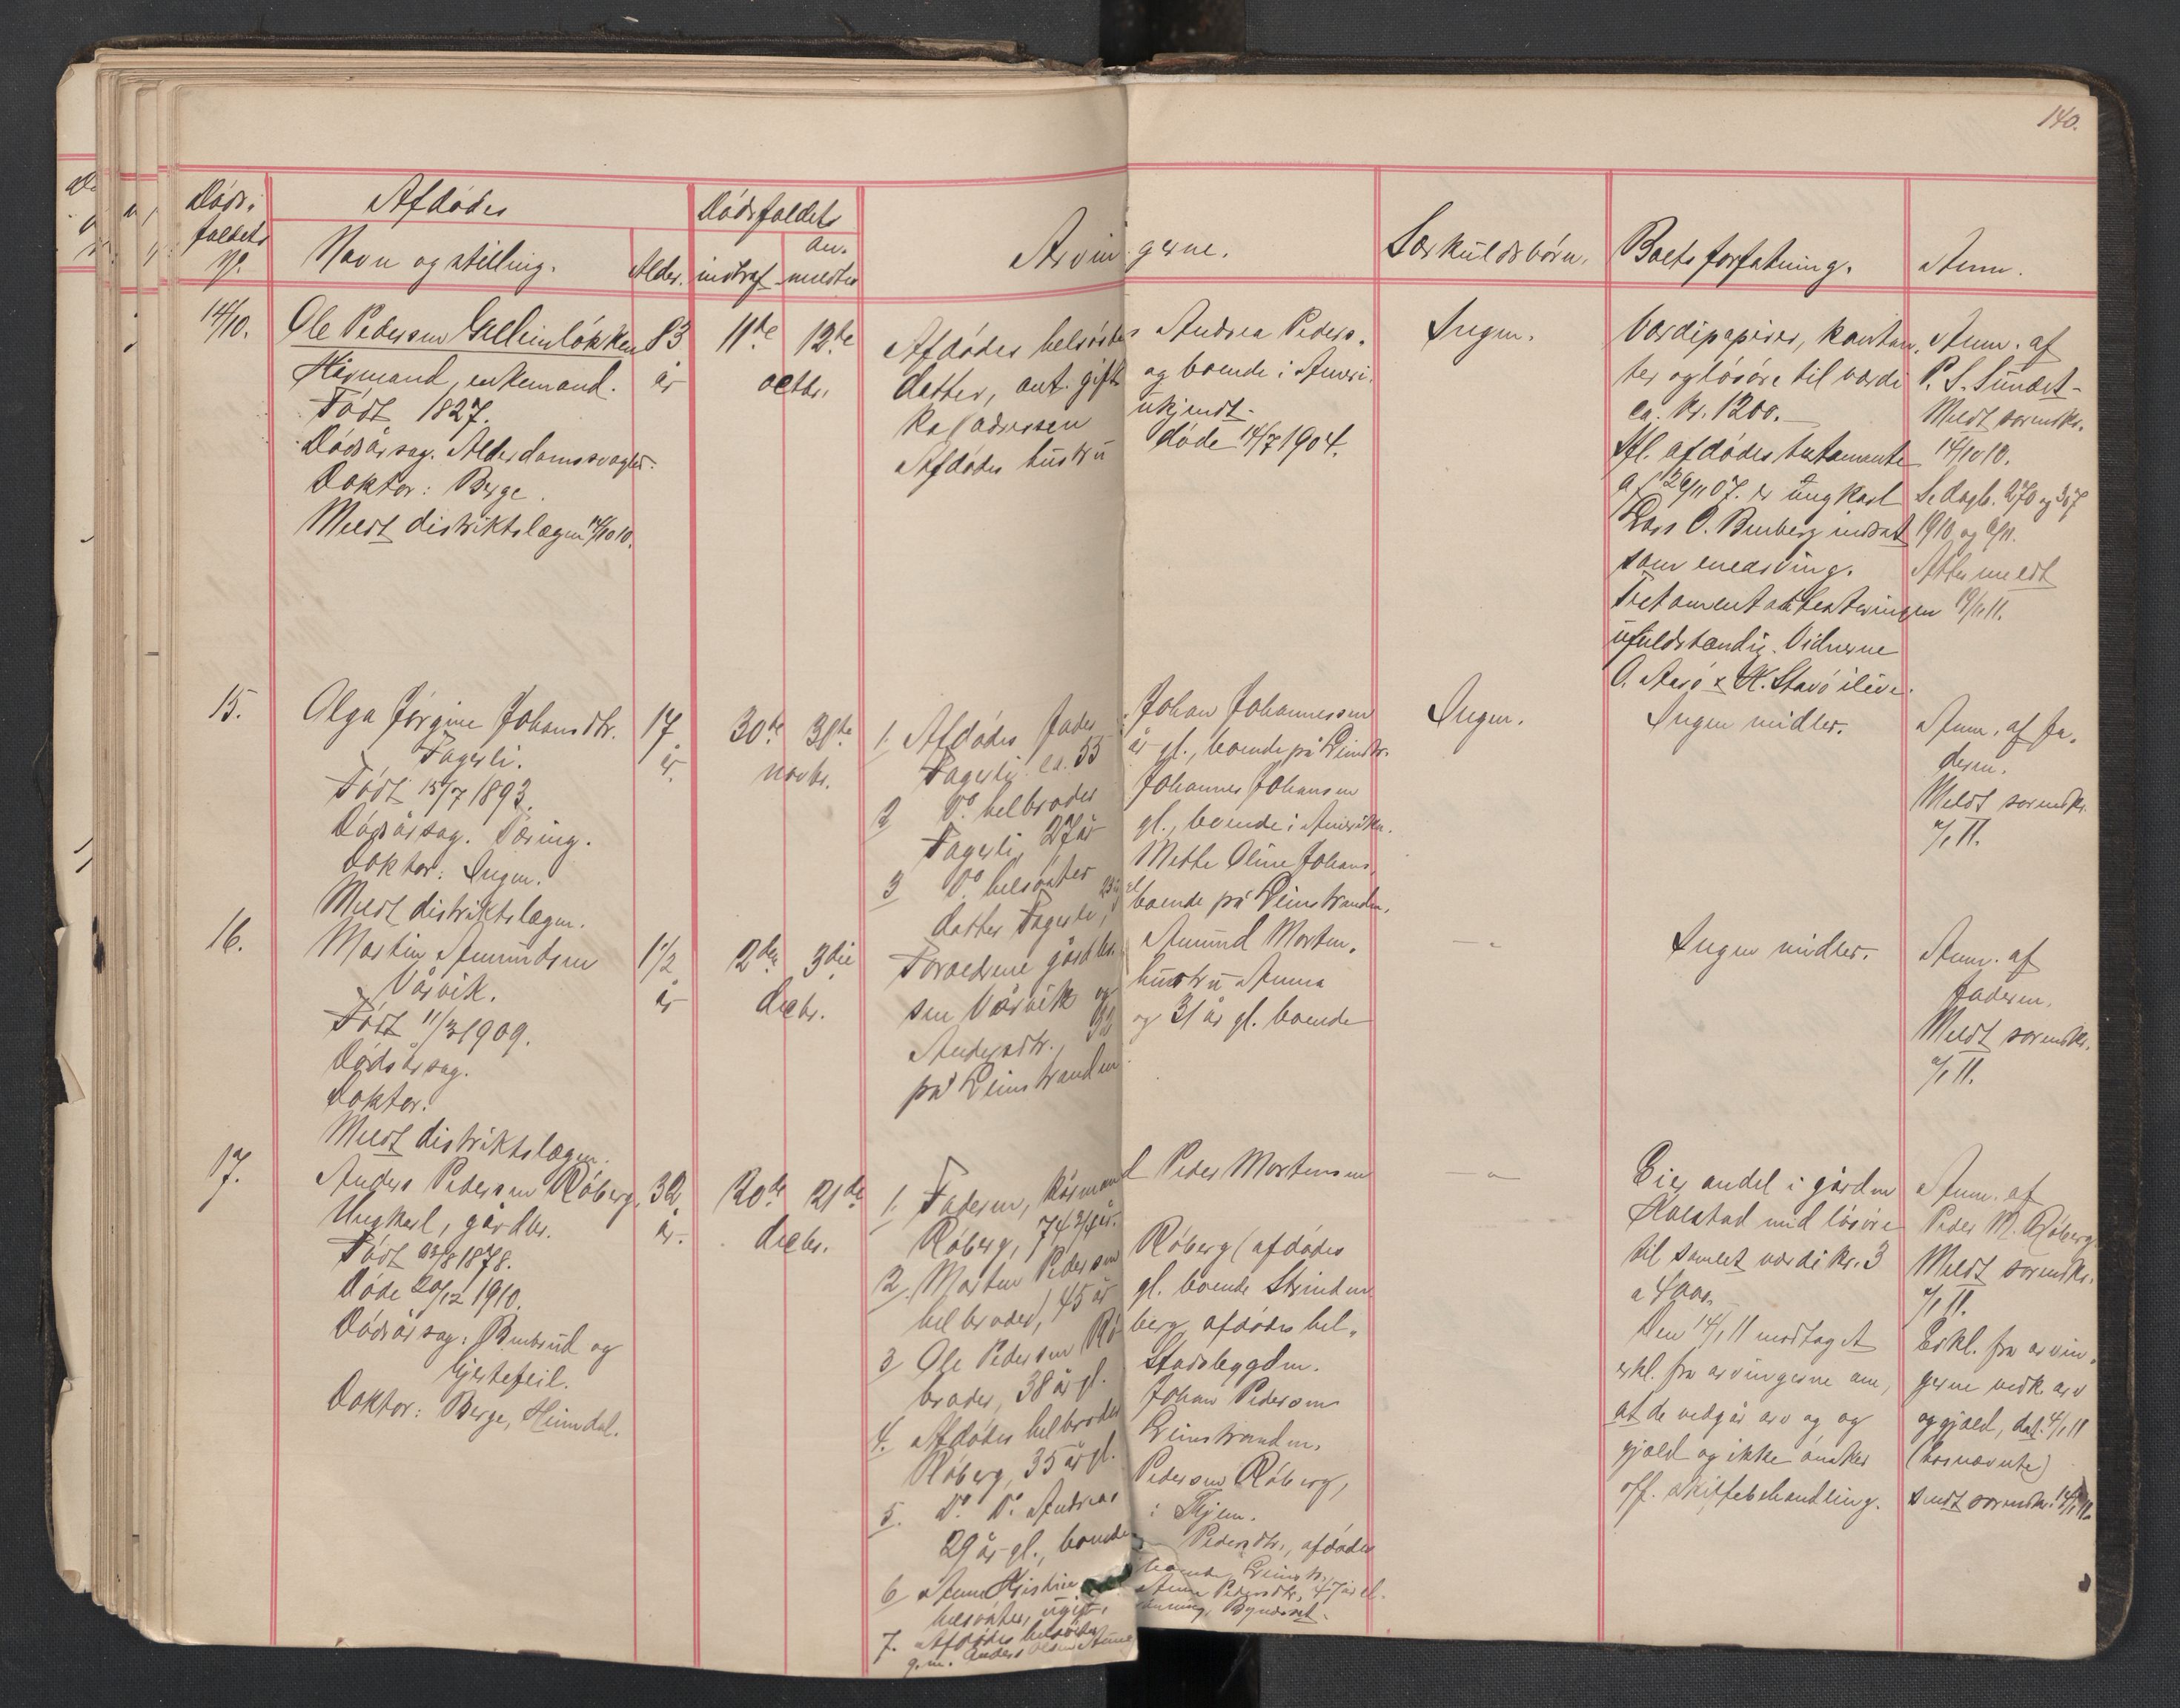 140.
Døds-
faldets
No.
Afdødes
Navn og stilling.
Alder.
Dødsfaldets
indtraf
an-
meldtes
Arvingerne.
Særkuldsbørn.
Boets forfatning.
Anm.
14/10.
Ole Pedersen Gelleinløkken
Kårmand, enkemand.
Født 1827.
Dødsårsag. Alderdomssvaghed.
Doktor: Berge.
Meldt distriktslægen 14/10 10.
83
år
11te 12te
octbr.
Afdødes helsøster Andrea Peders-
datter, ant. gift og boende i Ameri-
ka (adressen ukjendt.
Afdødes hustru døde 14/7 1904.
Ingen.
Værdipapirer, kontan-
ter og løsøre til værdi
ca. kr. 1200.-
Ifl. afdødes testamente
af 26/11 07. er ungkarl
Lars O. Benberg indsat
som enearving.
Testamentattesteringen
ufuldstændig. Vidnerne
O. Aasø & K. Stavø ilive.
Anm. af
P. S. Sundet-
Meldt sorenskr.
14/10 10.
Se dagb. 270 og 307
1910 og 9/11.
Atter meldt
19/1 11.
15.
Olga Jørgine Johansdtr.
Fagerli.
Født 15/7 1893.
Dødsårsag. Tæring.
Doktor: Ingen.
Meldt distriktslægen.
17
år
30te 30te
novbr.
1. Afdødes fader Johan Johannessen
Fagerli ca. 55 år gl., boende på Leinstr.
2 Do. helbroder Johannes Johansen
Fagerli, 27 år gl., boende i Amerika.
3 Do. helsøster Mette Oline Johans-
datter Fagerli, 23 år gl. boende på Leinstranden.
Ingen.
Ingen midler.
Anm. af fa-
deren.
Meldt sorenskr.
2/1 11.
16.
Martin Amundsen
Vårvik.
Født 11/3 1909.
Dødsårsag.
Doktor.
Meldt distriktslægen.
1 1/2
år
2den 3die
decbr.
Forældrene gårdbr. Amund Morten-
sen Vårvik og hustru Anna
Andersdtr., og 31 år gl. boende
på Leinstranden.
- " -
Ingen midler.
Anm. af
faderen.
Meldt sorenskr.
2/1 11.
17.
Anders Pedersen Røberg,
Ungkarl, gårdbr.
Født 23/8 1878.
Døde 20/12 1910.
Dødsårsag: Benbrud og
hjertefeil.
Doktor: Berge, Heimdal.
32
år.
20de 21de
decbr.
1. Faderen, kårmand Peder Mortensen
Røberg, 74 3/4 år.
2. Morten Pedersen Røberg (afdødes
helbroder), 45 år gl. boende Strinden
3 Ole Pedersen Røberg, afdødes hel-
broder, 38 år gl. Stadsbygden.
4. Afdødes helbroder Johan Pedersen
Røberg, 35 år gl. Leinstranden.
5. Do. Do. Andreas Pedersen Røberg,
29 år gl., boende i Thjem.
6 Anne Kristine Pedersdtr., afdødes
helsøster, ugift, boende Leinstr.
7. Afdødes helsøster Anne Pedersdtr., 47 år gl.
g.m. Anders Olsen Byneset.
- " -
Eier andel i gården
Kolstad med løsøre
til samlet værdi kr. 3
a 4000.
Den 14/1 11 modtaget
erkl. fra arvingerne om,
at de vedgår arv og og
gjæld og ikke ønsker
off. skiftebehandling.
Anm. af
Peder M. Røberg.
Meldt sorenskr.
2/1 11.
Erkl. fra arvin-
gerne vedk. arv
og gjæld, dat. 4/1 11
(hosnævnte)
sendt sorenskr. 14/1 11.